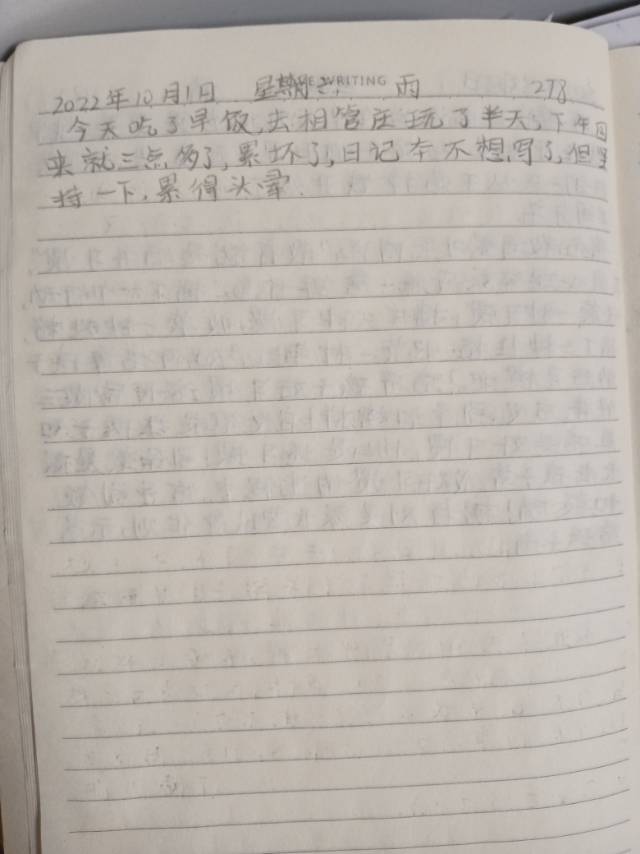 2022年10月1日 星期 WRITING 雨 273
今天吃了早饭,去相管庄玩了半天,下午回
来就三点多了,累坏了,日记本不想写了,但坚
持一下,累得头晕.